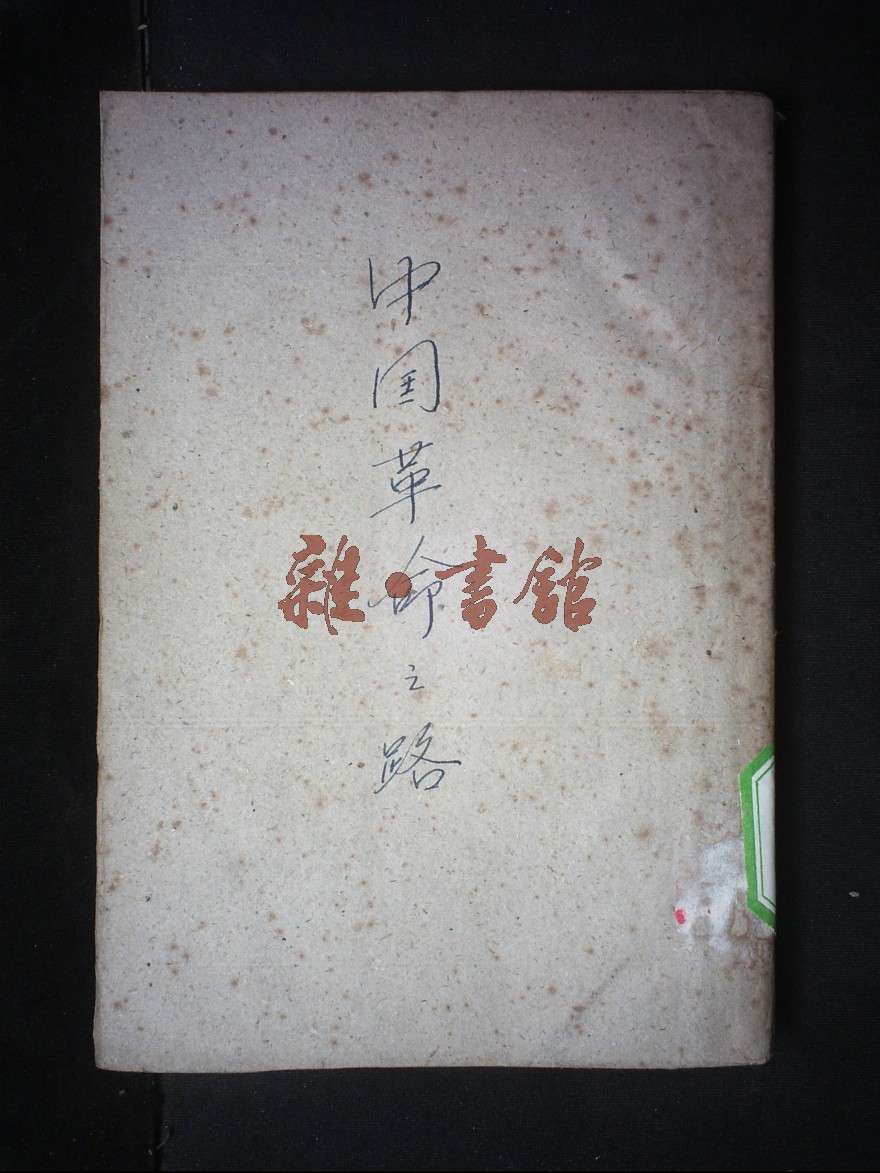 中国革命之路
雜·書舘